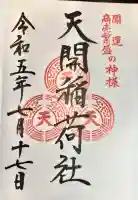 開運
商売繁盛の神様
天開稲荷社
令和五年七月十七日